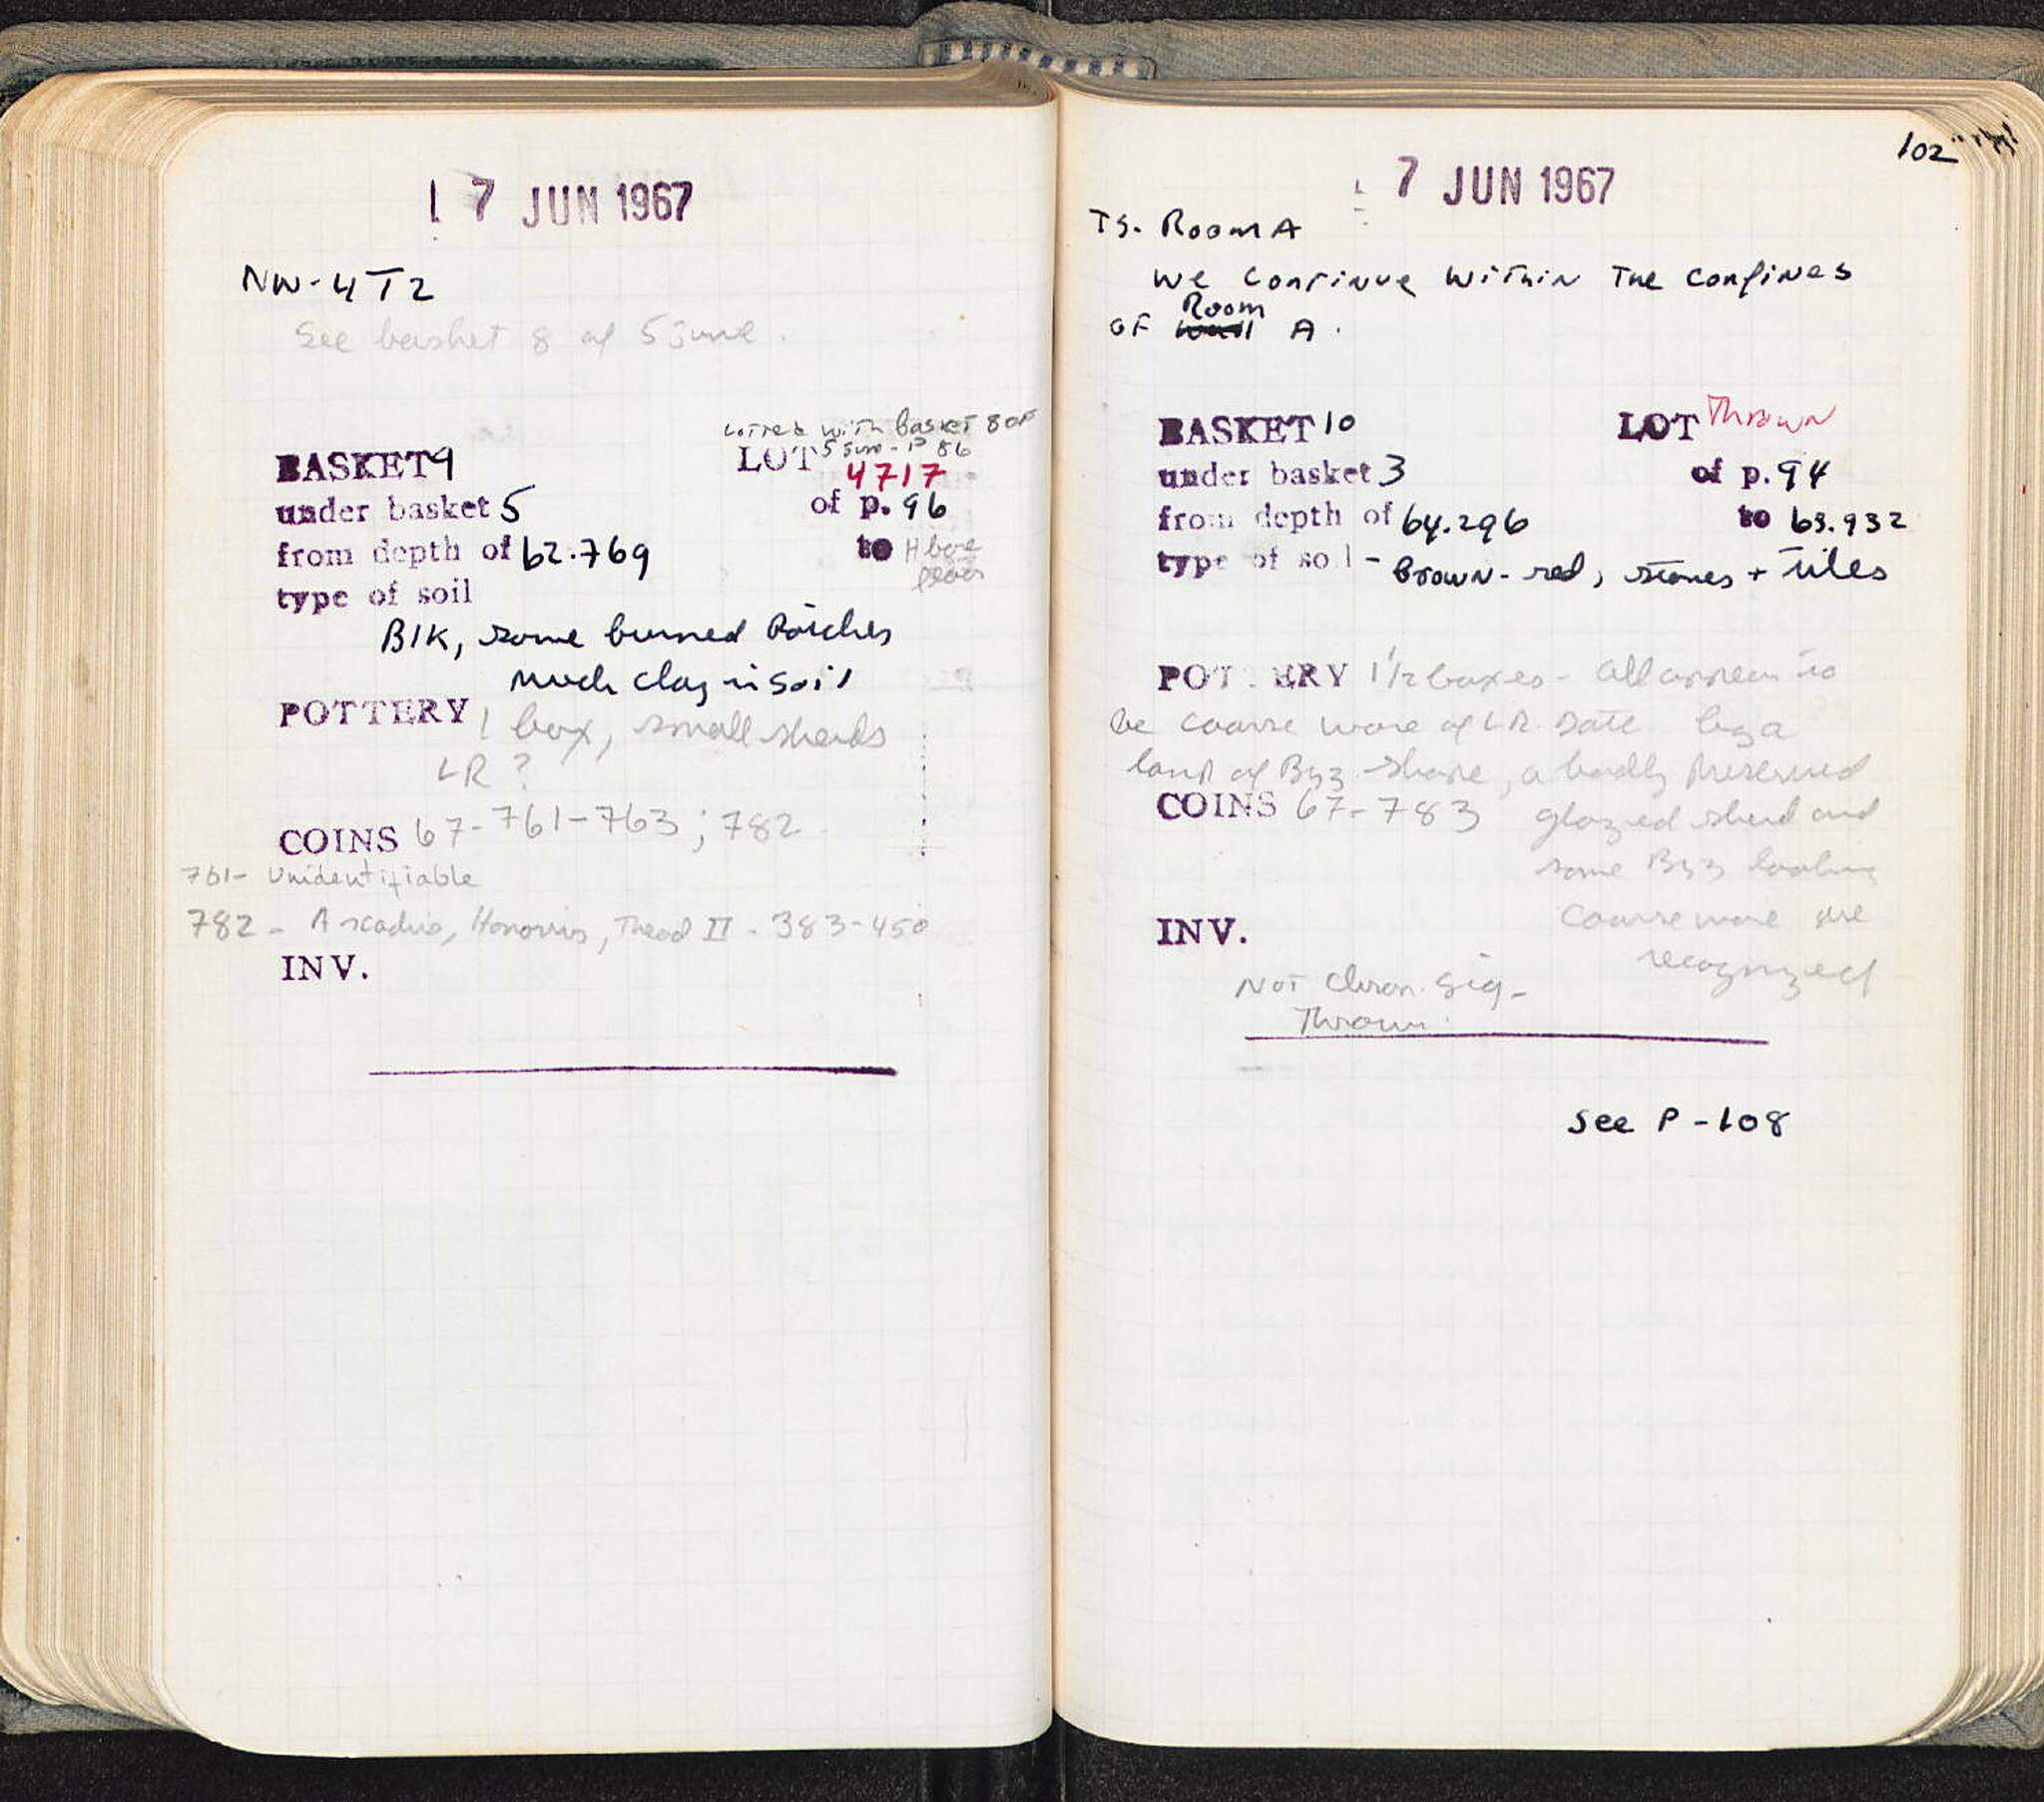 7 JUN 1967
NW-4 T2
See basket 8 of 5 June.
Lotted with Basket 8 of
5 June - P 86
BASKET 9 LOT 4717
under basket 5 of p. 96
from depth of 62.769 to
type of soil
Blk, some burned Patches
much clay in soil
POTTERY 1 box, small sherds
LR ?
COINS 67-761-763; 782
761- Unidentifiable
782 - Arcadius, Honorius, Theod II - 383-450
INV.
102
7 JUN 1967
T3. Room A
We continue within the confines
Room
of wall A.
BASKET 10 LOT Thrown
under basket 3 of p. 94
from depth of 64.296 to 63.932
type of soil - Brown-red, stones + tiles
POTTERY 1 1/2 boxes - all appear to
be coarse ware of LR. Date
lamp of Byz. shape, a badly preserved
COINS 67-783 glazed sherd and
some Byz looking
coarse ware are
recognized
INV.
Not Chron. Sig-
Thrown.
See P-108